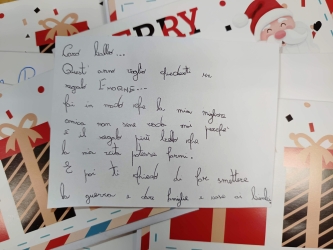 ERRY
Caro babbo...
Quest'anno voglio chiederti un
regalo ENORME...
fai in modo che la mia migliore
amica non se ne vada mai perché
è il regalo più bello che
la mia vita potesse
E poi ti chiedo di far smettere
la guerra e dare famiglie e case ai bambini